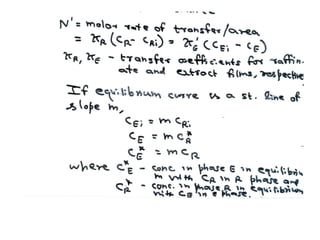 N' = molar rate of transfer/area
= K_R (C_R - C_Ri) = K'_E (C_Ei - C_E)
K_R, K_E - transfer coefficients for raffin-
ate and extract films, respective
If equilibrium curve is a st. line of
slope m,
C_Ei = m C_Ri
C_E = m C_R^*
C_E^* = m C_R
where C_E^* - conc. in phase E in equilibriu
m with C_R in R phase and
C_R^* - conc. in phase R in equilibrium
with C_E in E phase.